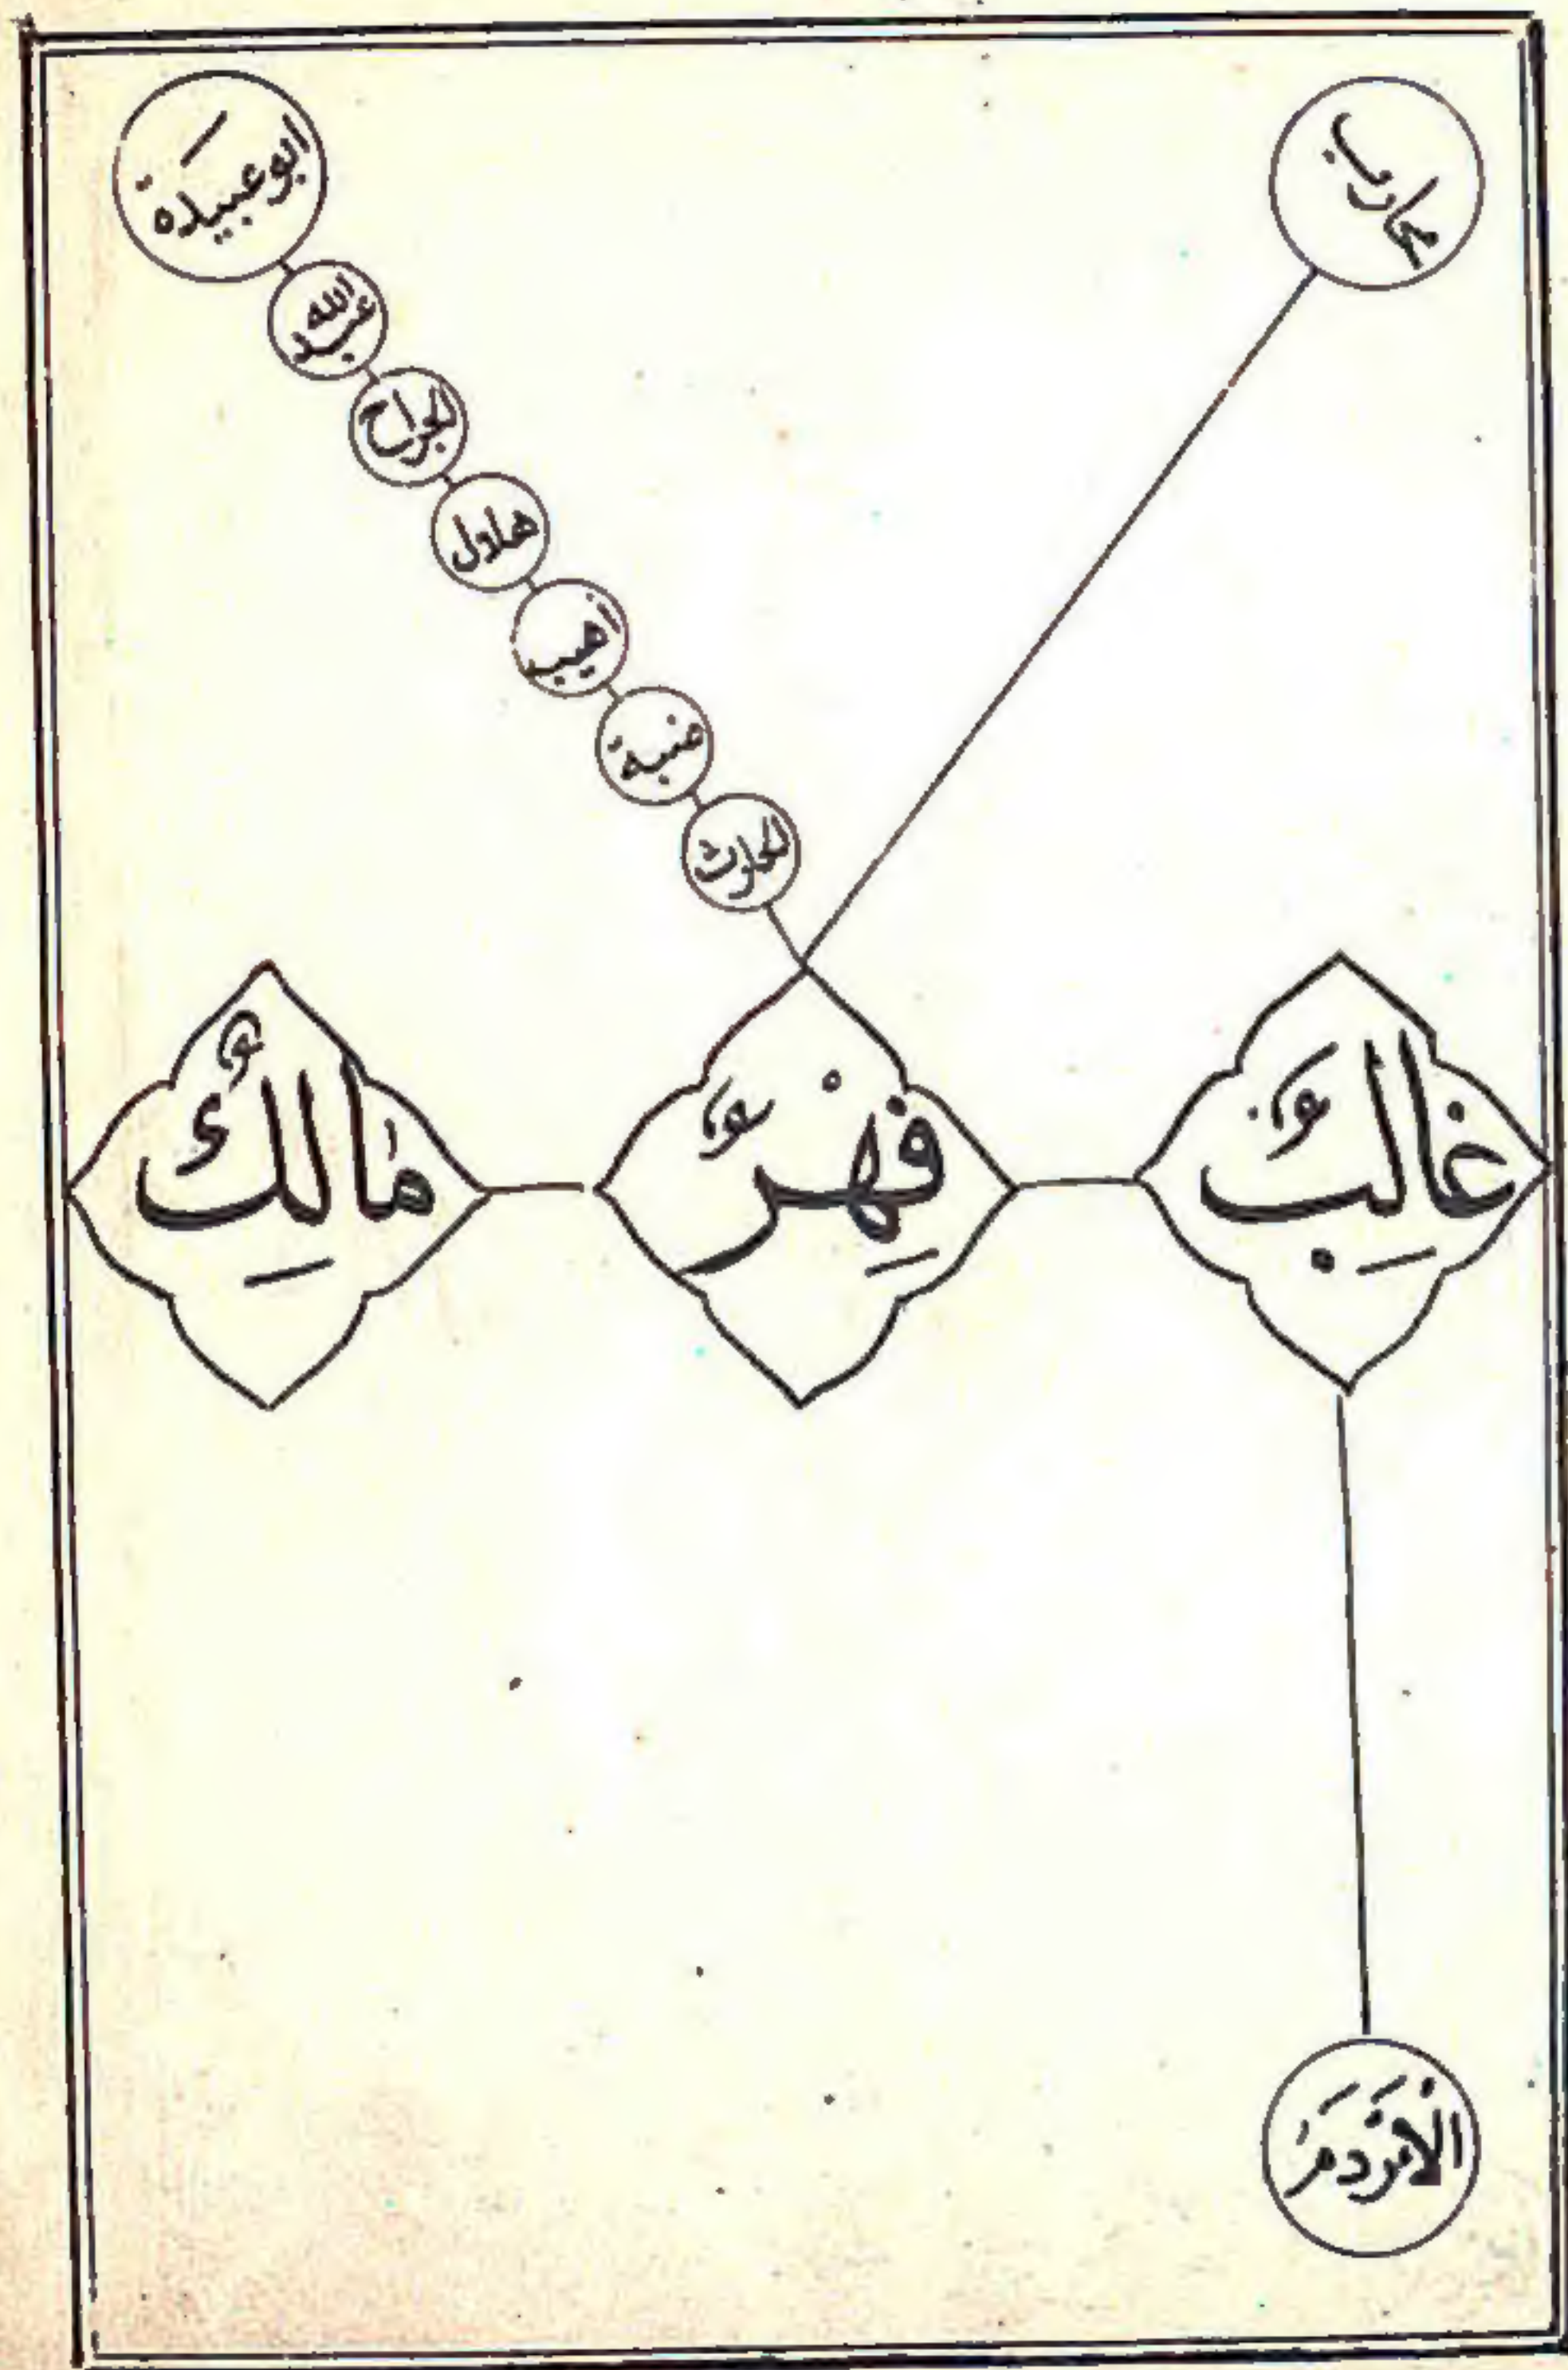 محارب
ابو عبيدة
عبد الله
الجراح
هلال
أهيب
ضبة
الحارث
غَالِبٌ
فِهْرٌ
مَالِكٌ